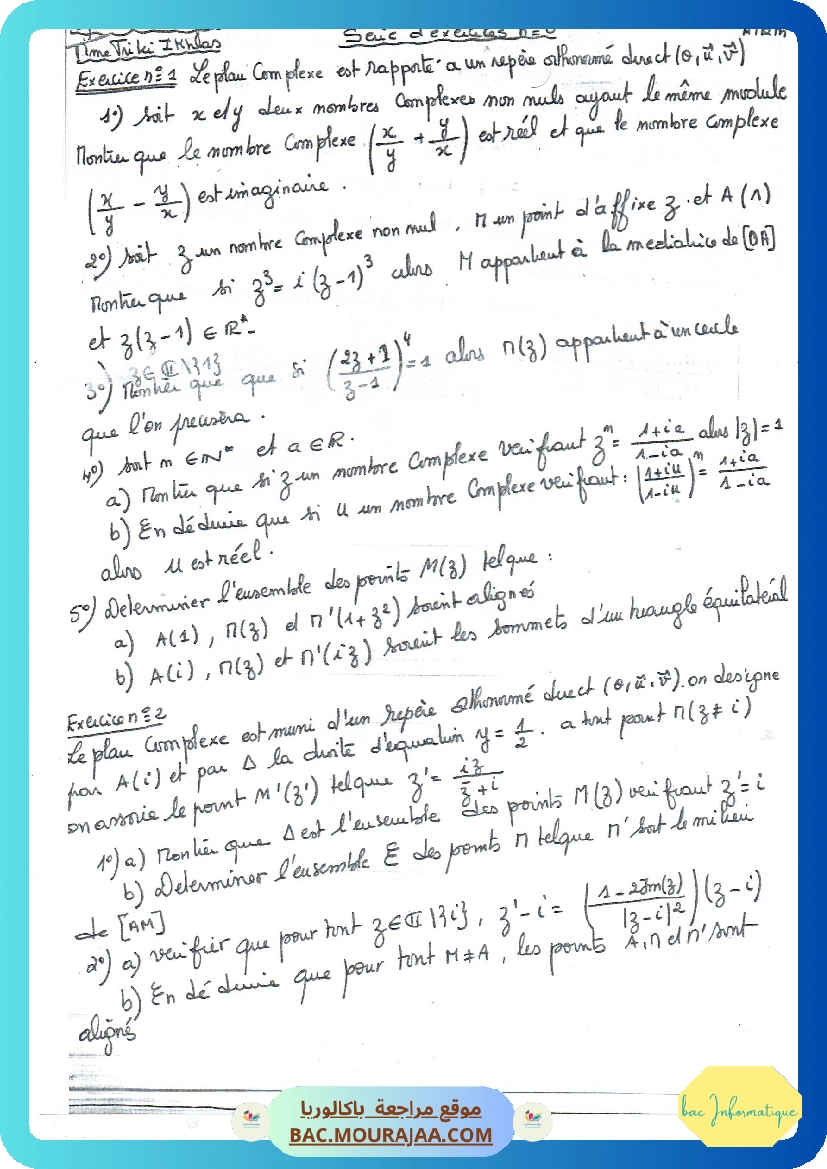 Mme Triki Ikhlas
Serie d'exercices n=
Exercice n=1 Le plan Complexe est rapporté a un repère orthonormé direct (o, u⃗, v⃗)
1°) Soit x et y deux nombres Complexes non nuls ayant le même module
Montrer que le nombre Complexe (x/y + y/x) est réel et que le nombre Complexe
(x/y - y/x) est imaginaire.
2°) Soit z un nombre Complexe non nul, M un point d'affixe z et A(1)
Montrer que si z³ = i(z-1)³ alors M appartient à la mediatrice de [OA]
et z(z-1) ∈ ℝ*-
z ∈ ℂ\{1}
3°) Montrer que que si ((2z+1)/(z-1))⁴ = 1 alors M(z) appartient à un cercle
que l'on precisera.
4°) Soit n ∈ ℕ* et a ∈ ℝ.
a) Montrer que si z un nombre Complexe verifiant zⁿ = (1+ia)/(1-ia) alors |z| = 1
b) En déduire que si u un nombre Complexe verifiant : ((1+iu)/(1-iu))ⁿ = (1+ia)/(1-ia)
alors u est réel.
5°) Determiner l'ensemble des points M(z) tel que :
a) A(1), M(z) et M'(1+z²) soient alignés
b) A(i), M(z) et M'(iz) soient les sommets d'un triangle équilatéral
Exercice n=2
Le plan Complexe est muni d'un repère orthonormé direct (o, u⃗, v⃗). on designe
par A(i) et par Δ la droite d'équation y = 1/2. a tout point M(z ≠ i)
on associe le point M'(z') tel que z' = iz/(z̄+i)
1°) a) Montrer que Δ est l'ensemble des points M(z) verifiant z' = i
b) Determiner l'ensemble E des points M tel que M' soit le milieu
de [AM]
2°) a) verifier que pour tout z ∈ ℂ\{i}, z'-i = ((1-2Im(z))/|z-i|²)(z-i)
b) En déduire que pour tout M ≠ A, les points A, M et M' sont
alignés
bac Informatique
موقع مراجعة باكالوريا
BAC.MOURAJAA.COM